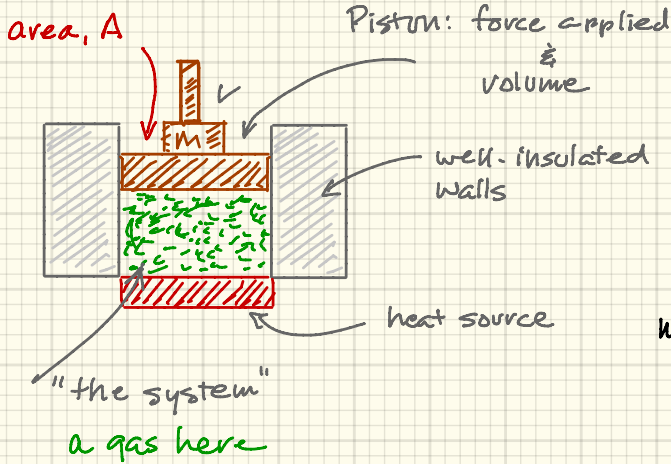 area, A
Piston: force applied
&
volume
m
well-insulated
walls
heat source
"the system"
a gas here